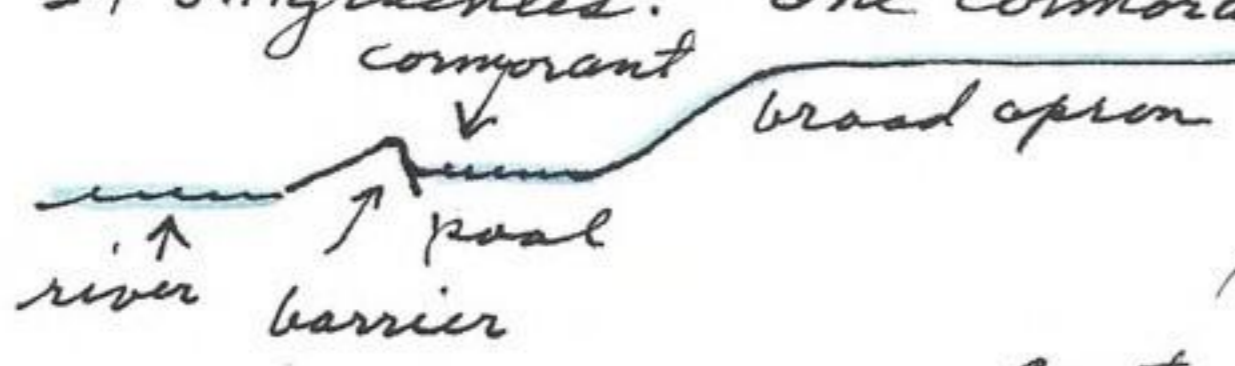 The cormora
cormorant
broad apron
pool
river
barrier